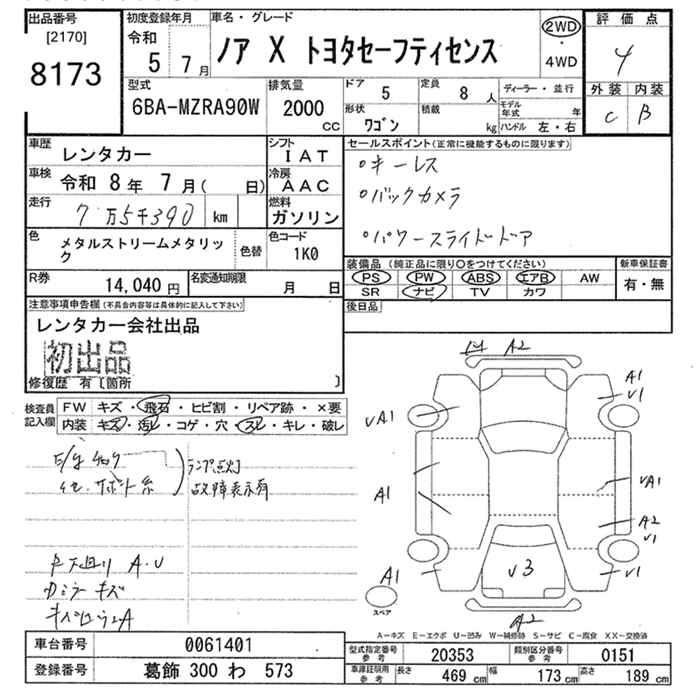 出品番号
[2170]
8173
初度登録年月
令和
5 7月
車名・グレード
ノア X トヨタセーフティセンス
2WD
・
4WD
評価点
4
外装 内装
C B
型式
6BA-MZRA90W
排気量
2000
cc
ドア 5
定員 8 人
形状 ワゴン
積載 kg
ディーラー・並行
モデル年式 年
ハンドル 左・右
車歴
レンタカー
車検
令和 8年 7月( 日)
走行
7万5千390 km
色
メタルストリームメタリック
色替
シフト
IAT
冷房
AAC
燃料
ガソリン
色コード
1K0
R券
14,040 円
名変通知期限
月 日
セールスポイント(正常に機能するものに限ります)
○キーレス
○バックカメラ
○パワースライドドア
装備品(純正品に限り○をつけてください)
PS PW ABS エアB AW
SR ナビ TV カワ
新車保証書
有・無
後日品
注意事項申告欄(不具合内容等は具体的に記入して下さい)
レンタカー会社出品
初出品
修復歴 有〔箇所 〕
検査員記入欄
FW キズ・飛石・ヒビ割・リペア跡・×要
内装 キズ・汚レ・コゲ・穴・スレ・キレ・破レ
ランプ点灯
故障表示有
A2
A1
V1
VA1
A1
VA1
A2
V1
V3
A1
V1
A2
スペア
A-キズ E-エクボ U-凹み W-補修跡 S-サビ C-腐食 XX-交換済
車台番号
0061401
登録番号
葛飾 300 わ 573
型式指定番号
参考
20353
類別区分番号
参考
0151
車庫証明用
参考
長さ 469 cm
幅 173 cm
高さ 189 cm